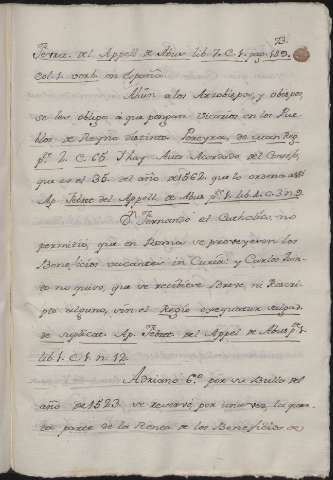 23.
Febret. del Appell de Abus lib. 7. C. 1. pag. 189.
Col. 1. verb. en España.
Ahún a los Arzobispos, y obispos,
se les obliga à que pongan Vicarios en los Pue-
blos de Reyno distinto. Pereyra, de man Reg.
pte. 2. C. 65. I hay Auto Acordado del Consejo,
que es el 35. del año de 1562. que lo ordena assi
Ap. Febret del Appell. de Abus pte. 1. lib. 1. C. 3. n. 9
Dn. Fernando el Catholico, no
permitió, que en Roma se proveyeran los
Beneficios vacantes in Curia: y Carlos Quin-
to no quiso, que se recibiese Breve, ni Rescri-
pto alguno, sin el Regio exequatur
de suplicat. Ap. Febret. del Appel de Abus pte. 1.
lib. 1. C. 1. n. 12.
Adriano 6.º por su Bulla del
año de 1523. se reservó por una vez la quar-
ta parte de la Renta de los Beneficios de